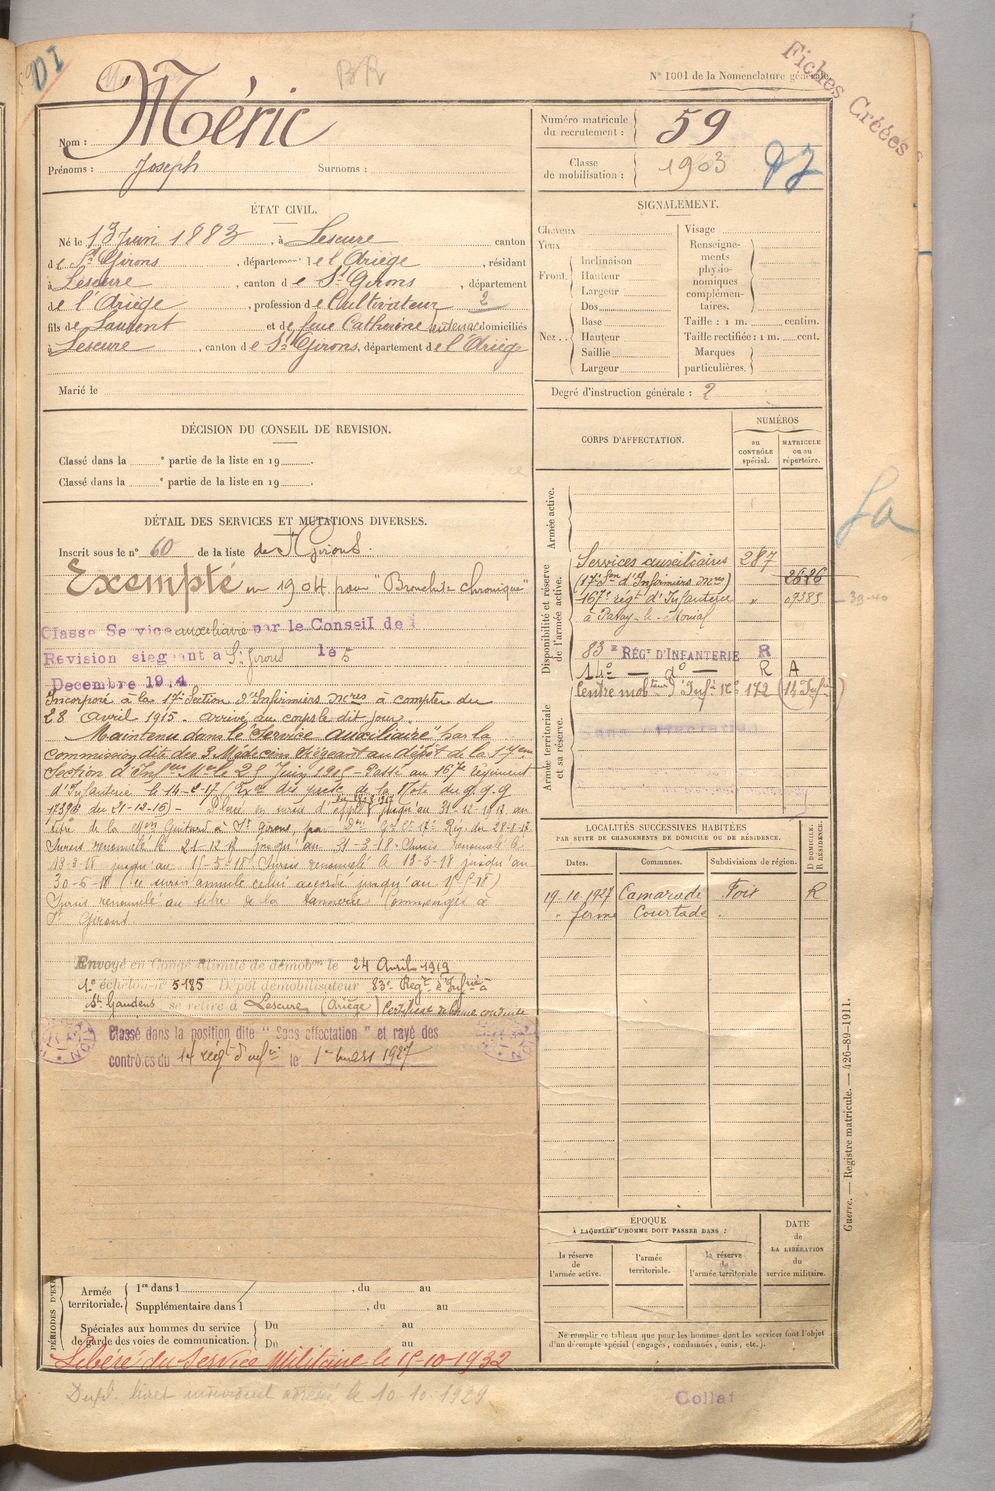 DI
BR
N° 1001 de la Nomenclature générale.
Fiches Créées
Nom : Méric
Prénoms : Joseph Surnoms :
Numéro matricule du recrutement : 59
Classe de mobilisation : 1903
ÉTAT CIVIL.
Né le 13 Juin 1883, à Lescure canton
de St Girons, département de l'Ariège, résidant
à Lescure, canton de St Girons, département
de l'Ariège, profession de Cultivateur 2
fils de Laurent et de feue Catherine domiciliés
à Lescure, canton de St Girons, département de l'Ariège
Marié le
SIGNALEMENT.
Cheveux
Yeux
Front.
Inclinaison
Hauteur
Largeur
Nez
Dos
Base
Hauteur
Saillie
Largeur
Visage
Renseignements physionomiques complémentaires.
Taille : 1 m. centim.
Taille rectifiée : 1 m. cent.
Marques particulières.
Degré d'instruction générale : 2
DÉCISION DU CONSEIL DE REVISION.
Classé dans la e partie de la liste en 19 .
Classé dans la e partie de la liste en 19 .
DÉTAIL DES SERVICES ET MUTATIONS DIVERSES.
Inscrit sous le n° 60 de la liste de St Girons.
Exempté en 1904 pour "Bronchite chronique"
Classe Service auxiliaire par le Conseil de
Revision siegeant à St Girons le 5
Decembre 1914
Incorporé à la 17e Section d'Infirmiers Mres à compter du
28 Avril 1915. arrivé au corps le dit jour.
Maintenu dans le "Service Auxiliaire" par la
commission dite des 3 Médecins siégeant au dépôt de la 17eme
Section d'Infers Mres le 25 Juin 1915 - Passé au 167e Régiment
d'Infanterie le 14-2-17 de la Note du G.Q.G
du 31-12-16) - Placé en sursis d'appel jusqu'au 31-12-1917 au
titre de la Mon Guitard à St Girons, par
Sursis renouvelé le 21-12-17 jusqu'au 31-3-18. Sursis renouvelé le
13-3-18 jusqu'au 15-5-18. Sursis renouvelé le 13-3-18 jusqu'au
30-6-18 (ce sursis annule celui accordé jusqu'au 15-5-18)
Sursis renouvelé au titre de la tannerie Commenges à
St Girons.
Envoyé en Congé illimité de démobon le 24 Avril 1919
1e échelon n° 5185 Dépot démobilisateur 83e Regt d'Infrie à
St Gaudens se retire à Lescure (Ariège) Certificat de bonne conduite
Classé dans la position dite "Sans affectation" et rayé des
contrôles du 14 régt d'infie le 1er mars 1927
CORPS D'AFFECTATION.
NUMÉROS
au CONTRÔLE spécial.
MATRICULE ou au répertoire.
Armée active.
Disponibilité et réserve de l'armée active.
Armée territoriale et sa réserve.
Services auxiliaires 287
(17e Son d'Infirmiers Mres) 2626
167e régt d'Infanterie " 07385
à Paray-le-Monial
83e RÉGt D'INFANTERIE R
14e — do — R A
Centre mobteur d'Infie n° 172 (14 Infie)
Sans affectation
LOCALITÉS SUCCESSIVES HABITÉES
PAR SUITE DE CHANGEMENTS DE DOMICILE OU DE RÉSIDENCE.
Dates. Communes. Subdivisions de région. D DOMICILE. R RÉSIDENCE.
19.10.1927 Camarade Foix R
" ferme Courtade "
ÉPOQUE
À LAQUELLE L'HOMME DOIT PASSER DANS :
la réserve de l'armée active.
l'armée territoriale.
la réserve de l'armée territoriale
DATE de LA LIBÉRATION du service militaire.
Ne remplir ce tableau que pour les hommes dont les services font l'objet
d'un décompte spécial (engagés, condamnés, omis, etc.).
Armée territoriale.
1re dans l , du au
Supplémentaire dans l , du au
Spéciales aux hommes du service de garde des voies de communication.
Du au
Du au
Libéré du Service Militaire le 15-10-1932
Dupl. livret individuel adressé le 10.10.1929
Collat
Guerre. — Registre matricule. — 426-89-1911.